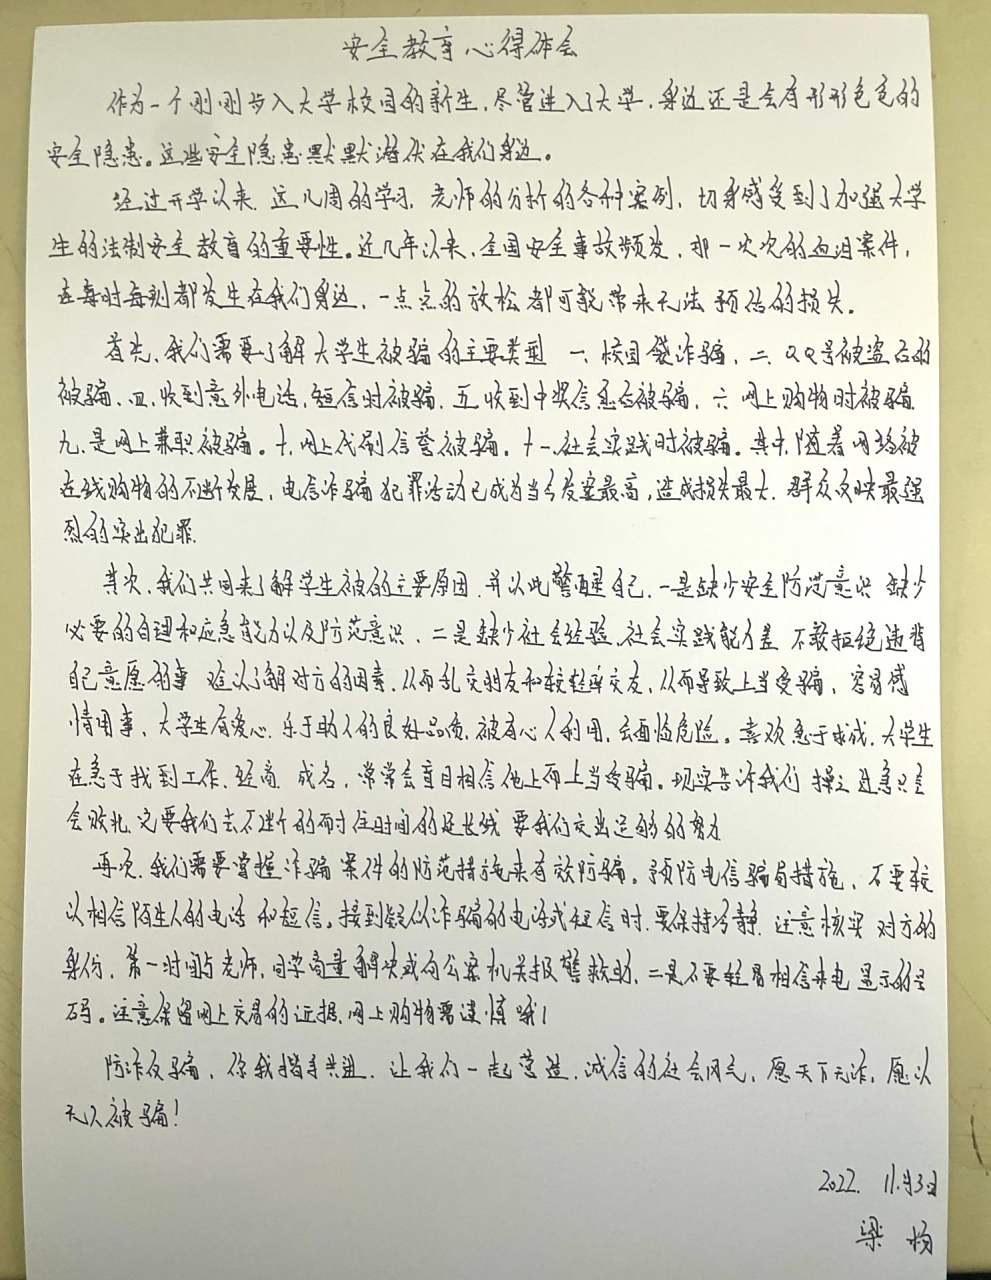 安全教育心得体会
作为一个刚刚步入大学校园的新生,尽管进入了大学,身边还是会有形形色色的
安全隐患。这些安全隐患默默潜伏在我们身边。
经过开学以来,这几周的学习,老师的分析的各种案例,切身感受到了加强大学
生的法制安全教育的重要性。近几年以来,全国安全事故频发,那一次次的血泪案件,
在每时每刻都发生在我们身边,一点点的放松都可能带来无法预估的损失。
首先,我们需要了解大学生被骗的主要类型 一、校园贷诈骗,二、QQ号被盗后的
被骗,四,收到意外电话,短信时被骗,五,收到中奖信息后被骗,六 网上购物时被骗
九,是网上兼职被骗。十,网上代刷信誉被骗。十一,社会实践时被骗。其中,随着网络被
在线购物的不断发展,电信诈骗犯罪活动已成为当今发案最高,造成损失最大,群众反映最强
烈的突出犯罪.
其次,我们共同来了解学生被的主要原因,并以此警醒自己,一是缺少安全防范意识 缺少
必要的自理和应急能力以及防范意识,二是缺少社会经验,社会实践能力差 不敢拒绝违背
自己意愿的事 难以了解对方的因素,从而乱交朋友和较轻率交友,从而导致上当受骗,容易感
情用事,大学生有爱心,乐于助人的良好品质,被有心人利用,会面临危险。喜欢急于求成,大学生
在急于找到工作,经商,成名,常常会盲目相信他上而上当受骗。现实告诉我们 操之过急只会
会败北,它要我们去不断的耐住时间的延长线 要我们交出足够的努力
再次,我们需要掌握诈骗案件的防范措施来有效防骗。预防电信骗局措施,不要较
以相信陌生人的电话和短信。接到疑似诈骗的电话或短信时,要保持冷静,注意核实对方的
身份,第一时间与老师,同学商量解决或向公案机关报警救助,二是不要轻易相信来电显示的号
码。注意保留网上交易的证据,网上购物需谨慎哦!
防诈反骗,你我携手共进,让我们一起营造,诚信的社会风气,愿天下无诈,愿以
无人被骗!
2022. 11月3日
梁 杨